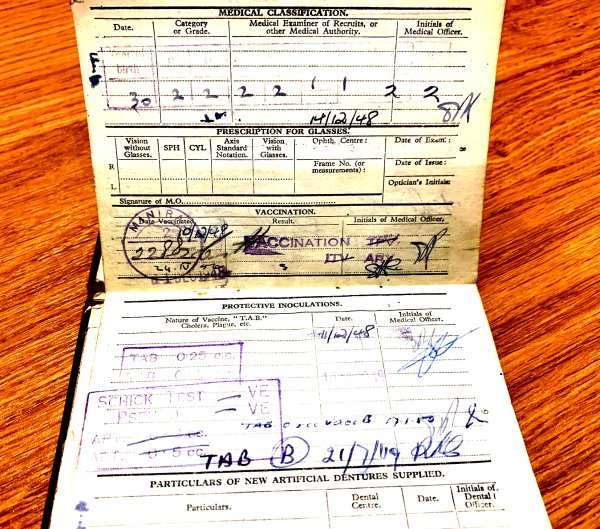 MEDICAL CLASSIFICATION.
Date. Category or Grade. Medical Examiner of Recruits, or other Medical Authority. Initials of Medical Officer.
birth
20 2 2 2 2 1 1 2 2
14/12/48
PRESCRIPTION FOR GLASSES.
Vision without Glasses. SPH CYL Axis Standard Notation. Vision with Glasses. Ophth. Centre: Date of Exam:
R
Frame No. (or measurements): Date of Issue:
L
Optician's Initials:
Signature of M.O.
VACCINATION.
Date Vaccinated. Result. Initials of Medical Officer.
10/12/48
VACCINATION
PROTECTIVE INOCULATIONS.
Nature of Vaccine, "T.A.B." Cholera, Plague, etc. Date. Initials of Medical Officer.
11/12/48
TAB 0·25 c.c.
SCHICK TEST - VE
- VE
TAB
0·5 c.c.
TAB B 21/7/49
PARTICULARS OF NEW ARTIFICIAL DENTURES SUPPLIED.
Particulars. Dental Centre. Date. Initials of Dental Officer.